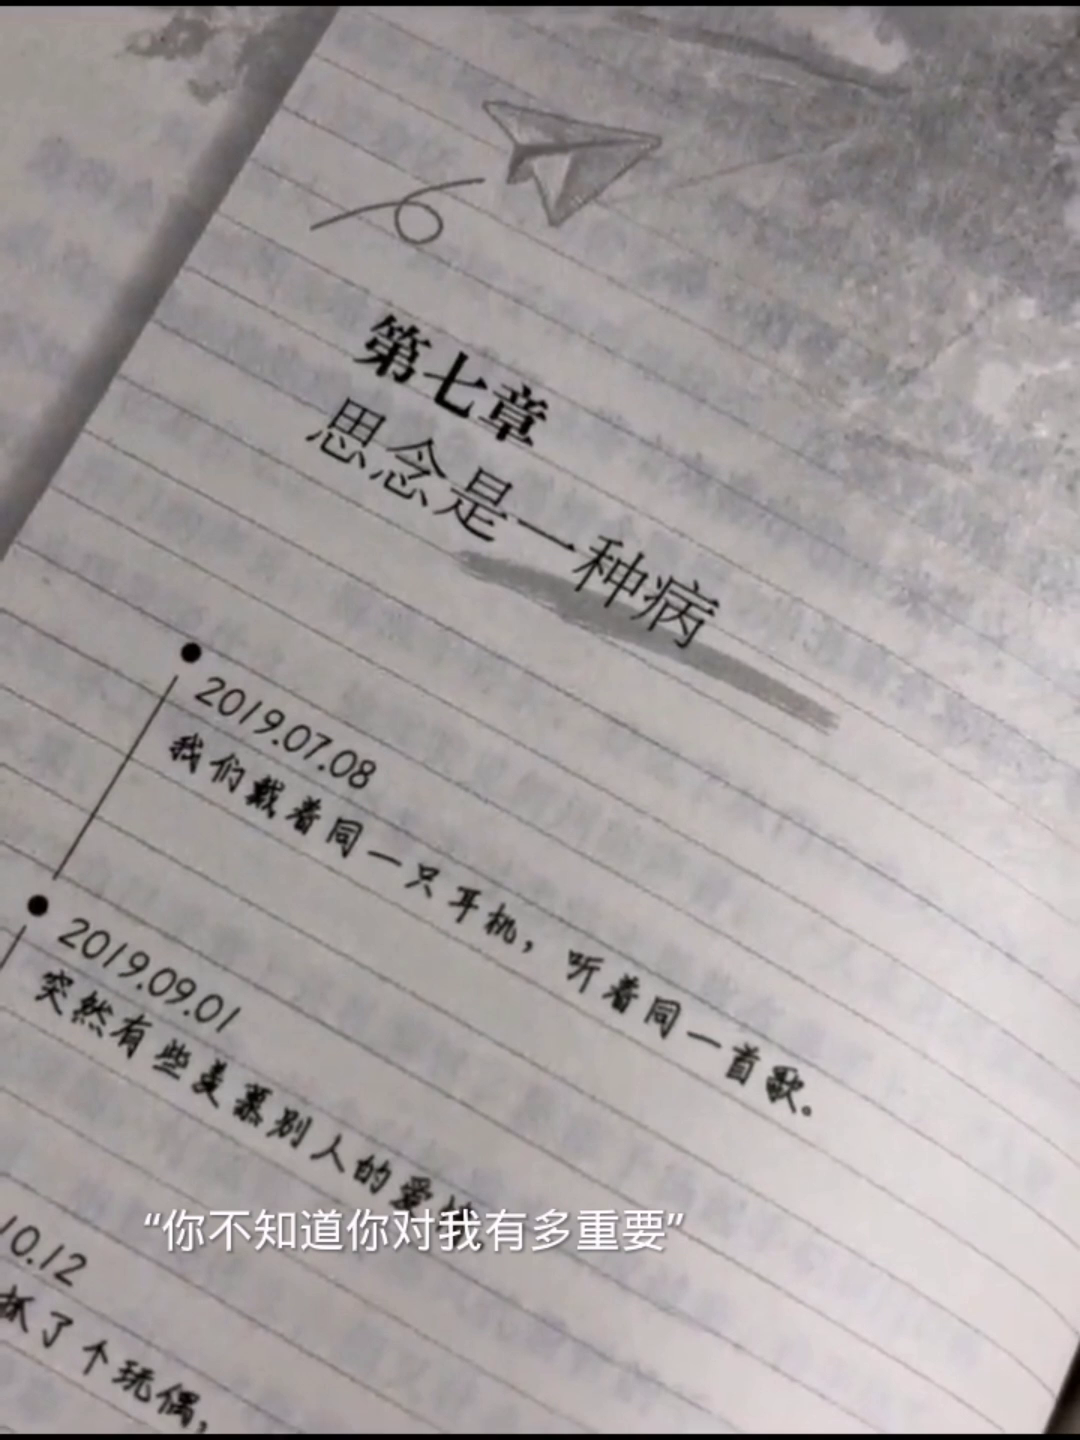 第七章
思念是一种病
2019.07.08
我们戴着同一只耳机，听着同一首歌。
2019.09.01
突然有些羡慕别人的爱
“你不知道你对我有多重要”
10.12
抓了个玩偶，